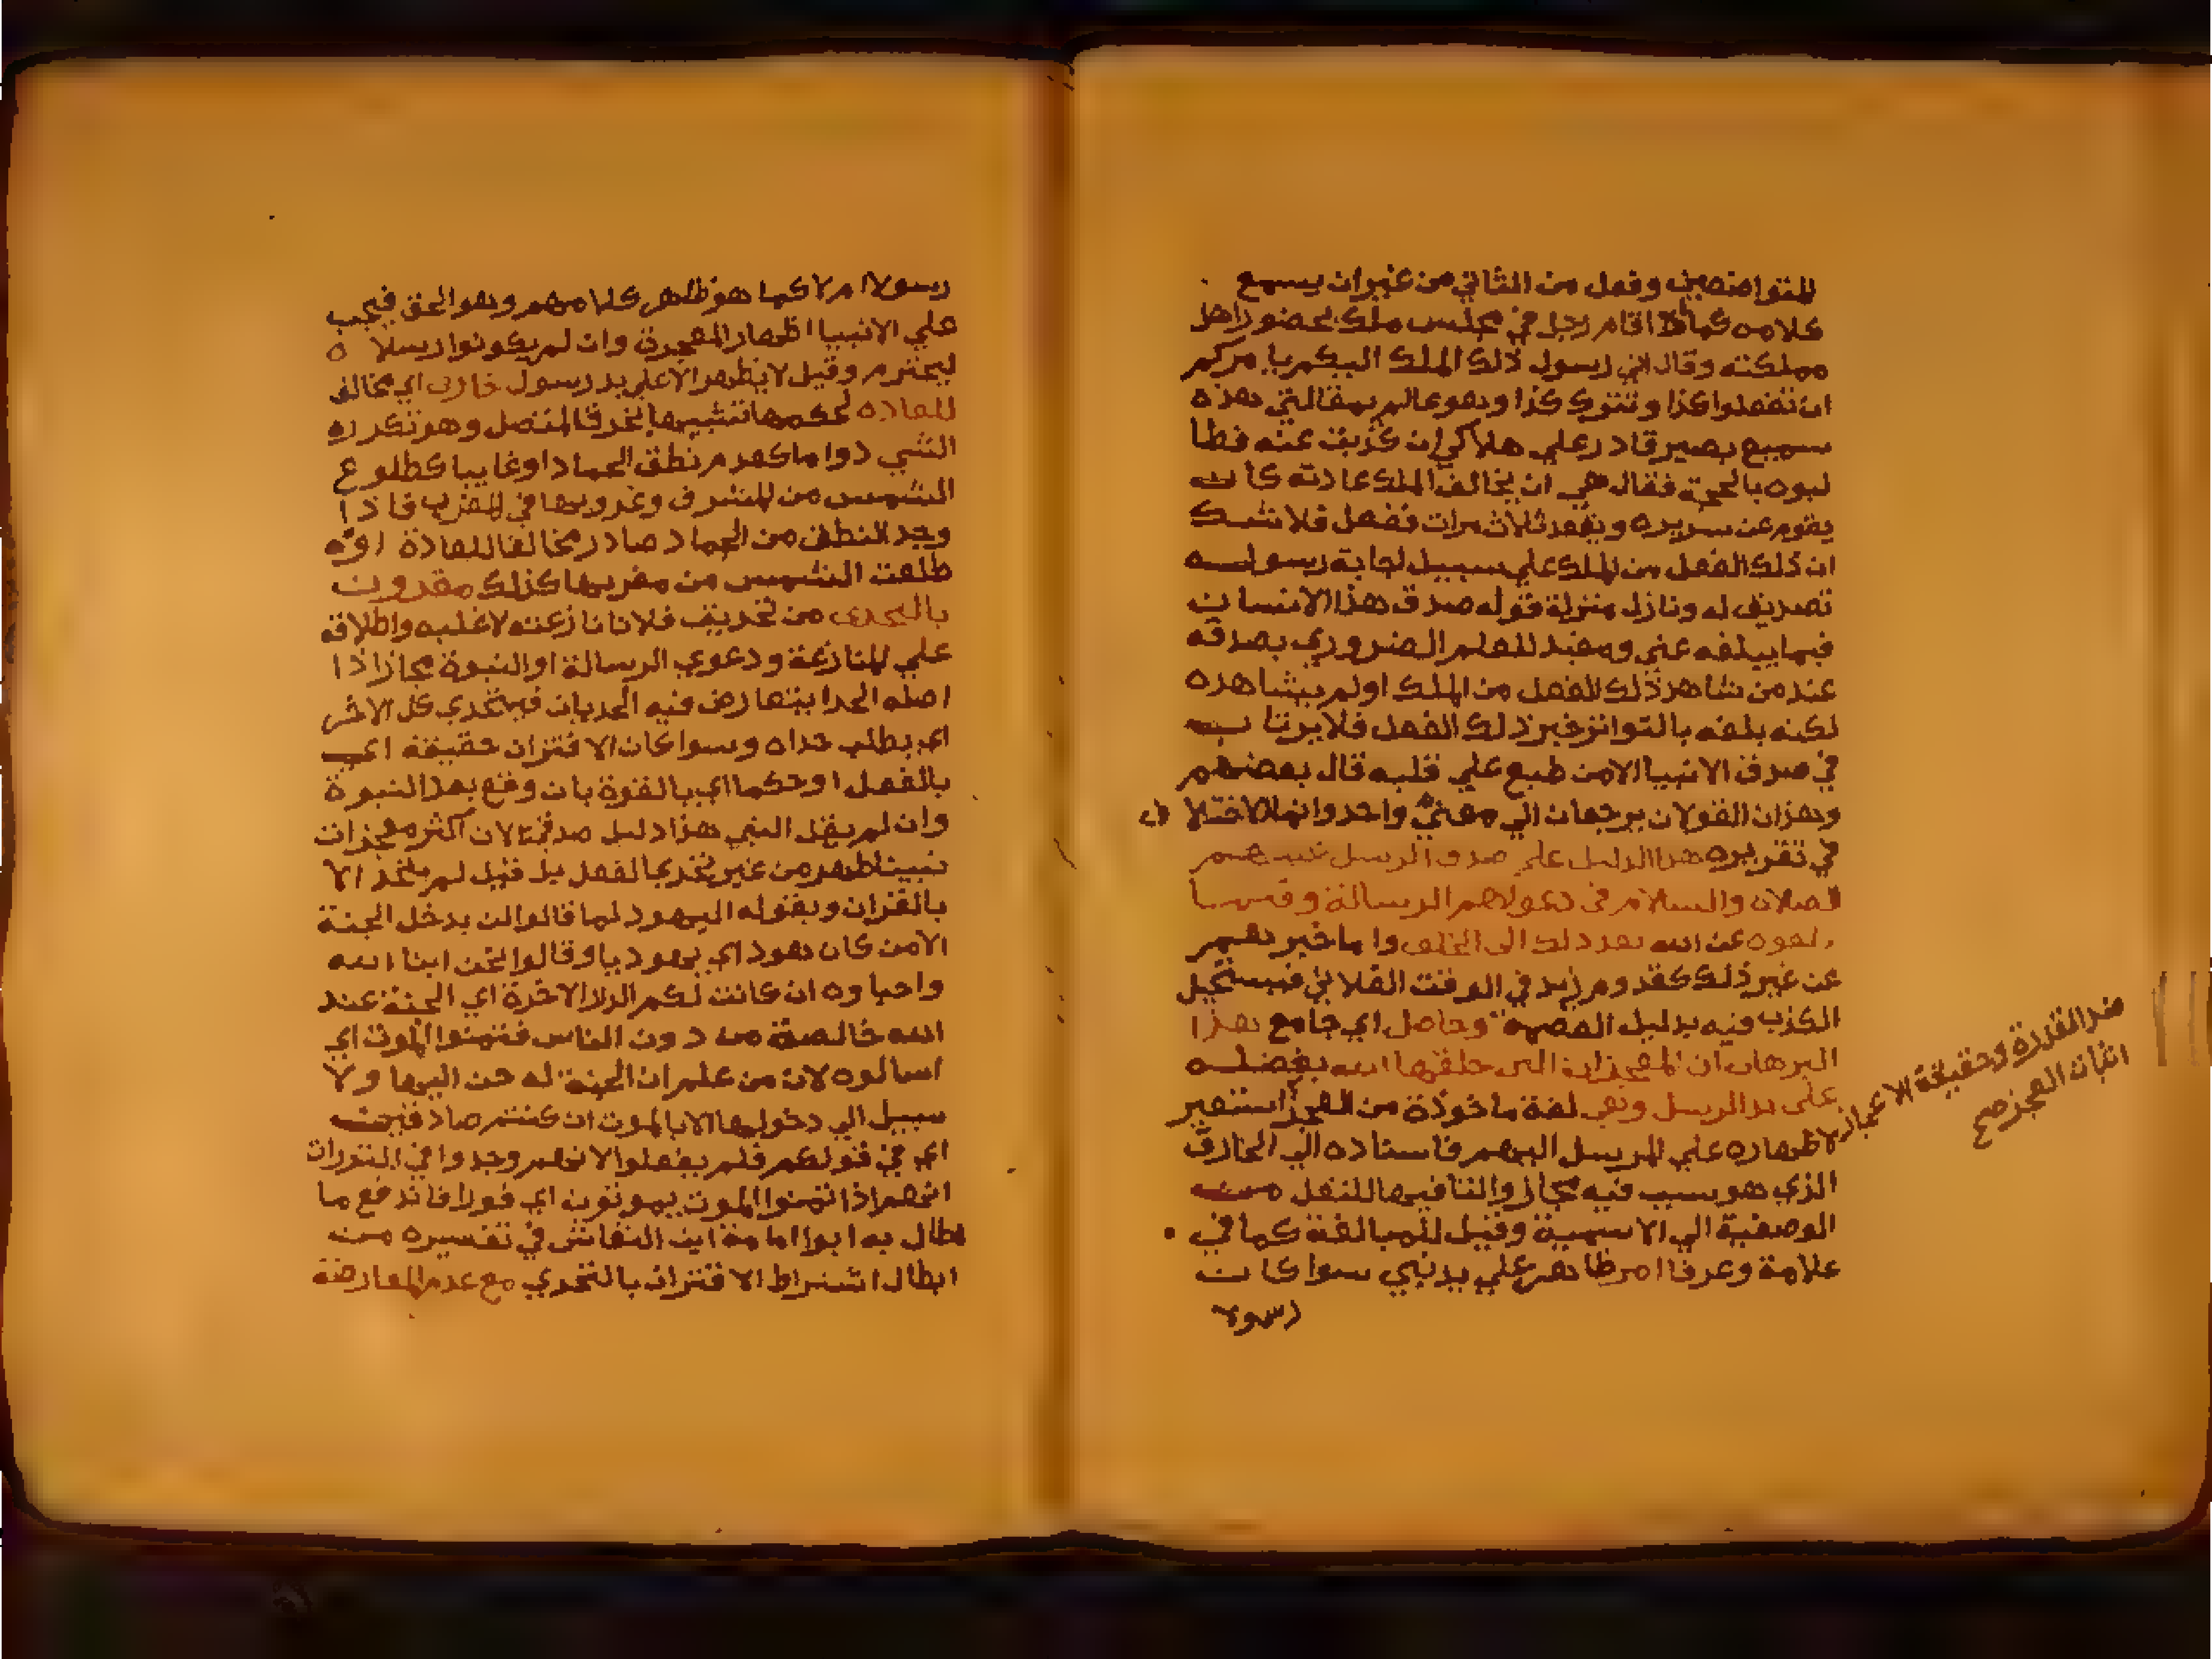 للتواضعين وفعل من الثاني من غير ان يسمع
كلامه كما لو اقام رجل في مجلس ملك بحضور اهل
مملكته وقال اني رسول ذلك الملك اليكم يا مركم
ان تفعلوا كذا وتتركو كذا وهو عالم بمقالتي هذه
سميع بصير قادر علي هلاكي ان كذبت عنه فطا
لبوه بالحجة فقال هي ان يخالف الملك عادته كان
يقوم عن سريره ويقعد ثلاث مرات ففعل فلا شك
ان ذلك الفعل من الملك علي سبيل اجابة رسوله
تصديق له ونازل منزلة قوله صدق هذا الانسان
فيما يبلغه عني ومفيد للعلم الضروري بصدقه
عند من شاهد ذلك الفعل من الملك او لم يشاهده
لكنه بلغه بالتواتر خبر ذلك الفعل فلا يرتاب
في صدق الانبيا الا من طبع علي قلبه قال بعضهم
وهذان القولان يرجعان الي معني واحد وانما الاختلاف
في تقريره هذا الدليل علي صدق الرسل عليهم
الصلاة والسلام في دعواهم الرسالة وفيما
بلغوه عن الله بعد ذلك الى الخلق واما خبرهم
عن غير ذلك كقدوم زيد في الوقت الفلاني فيستحيل
الكذب فيه بدليل العصمة وحاصل اي جامع هذا
البرهان ان المعجزات التي خلقها الله بفضله
على يد الرسل وهي لغة ماخوذة من العجز استعير
لاظهاره علي المرسل اليهم فاسناده الي الخارق
الذي هو سبب فيه مجاز والتا فيها للنقل من
الوصفية الي الاسمية وقيل للمبالغة كما في
علامة وعرفا امر ظاهر علي يد نبي سوا كان
رسولا
ضد القدرة وحقيقة الاعجاز
اثبات العجز صح
رسولا ام لا كما هو ظاهر كلامهم وهو الحق فيجب
علي الانبيا اظهار المعجزة وان لم يكونوا رسلا
ليحترم وقيل لا يظهر الا علي يد رسول خارق اي مخالف
للعاده لحكمها تشبيها بخرق المتصل وهو تكرره
الشي دوا ما كعدم نطق الجماد او غايبا كطلوع
الشمس من المشرق وغروبها في المغرب فاذا
وجد النطق من الجماد صادر مخالفا للعادة او
طلعت الشمس من مغربها كذلك مقرون
بالتحدي من تحديت فلانا نازعته لاغلبه واطلاقه
علي المنازعة ودعوي الرسالة او النبوة مجازا ذا
اصله الحدا يتعارض فيه الحديان فيتحدي كل الاخر
اي يطلب حداه وسوا كان الاقتران حقيقة اي
بالفعل او حكما اي بالقوة بان وقع بعد النبوة
وان لم يقل النبي هذا دليل صدقي لان اكثر معجزات
نبينا ظهر من غير تحدي بالفعل بل قيل لم يتحد الا
بالقران وبقوله اليهود لما قالوا لن يدخل الجنة
الا من كان هود اي يهوديا وقالوا نحن ابنا الله
واحباوه ان كانت لكم الدار الاخرة اي الجنة عند
الله خالصة من دون الناس فتمنوا الموت اي
اسالوه لان من علم ان الجنة له حن اليها ولا
سبيل الي دخولها الا بالموت ان كنتم صادقين
اي في قولكم فلم يفعلوا لانهم وجدوا في التورات
انهم اذا تمنوا الموت يموتون اي فورا فاندفع ما
اطال به ابوا امامة ابن النقاش في تفسيره من
ابطال اشتراط الاقتران بالتحدي مع عدم المعارضة